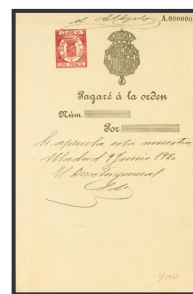 A.000000
Pagaré á la orden
Núm.
Por
Se aprueba esta muestra
Madrid 9 Junio 1920
El Director general